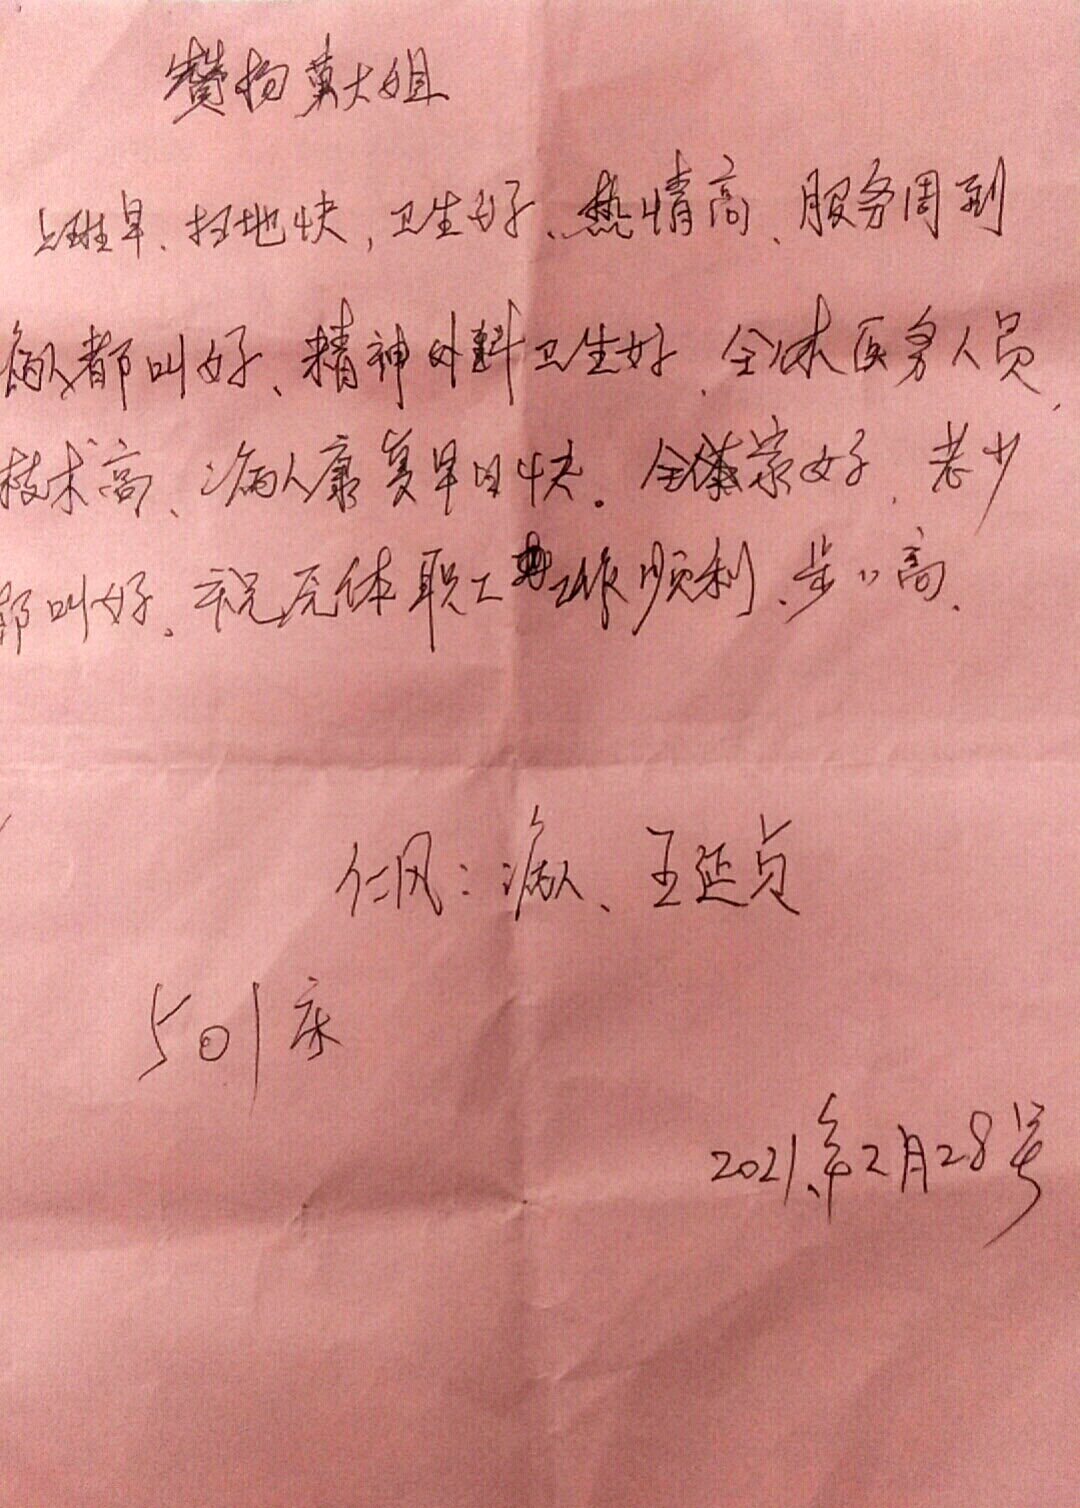 赞扬黄大姐
上班早、扫地快,卫生好、热情高、服务周到
病人都叫好、精神外科卫生好、全体医务人员、
技术高、病人康复早日快。全家好、老少
都叫好。祝全体职工工作顺利、步〃高、
仁风:病人、王延贞
501床
2021年2月28号